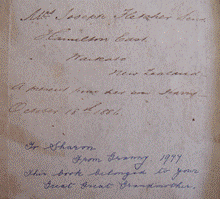 Mrs Joseph Fletcher Senr
Hamilton East
Waikato
New Zealand
A present from her son
October 18th
To Sharon
From Granny 1977
This book belonged to your
Great Great Grandmother.